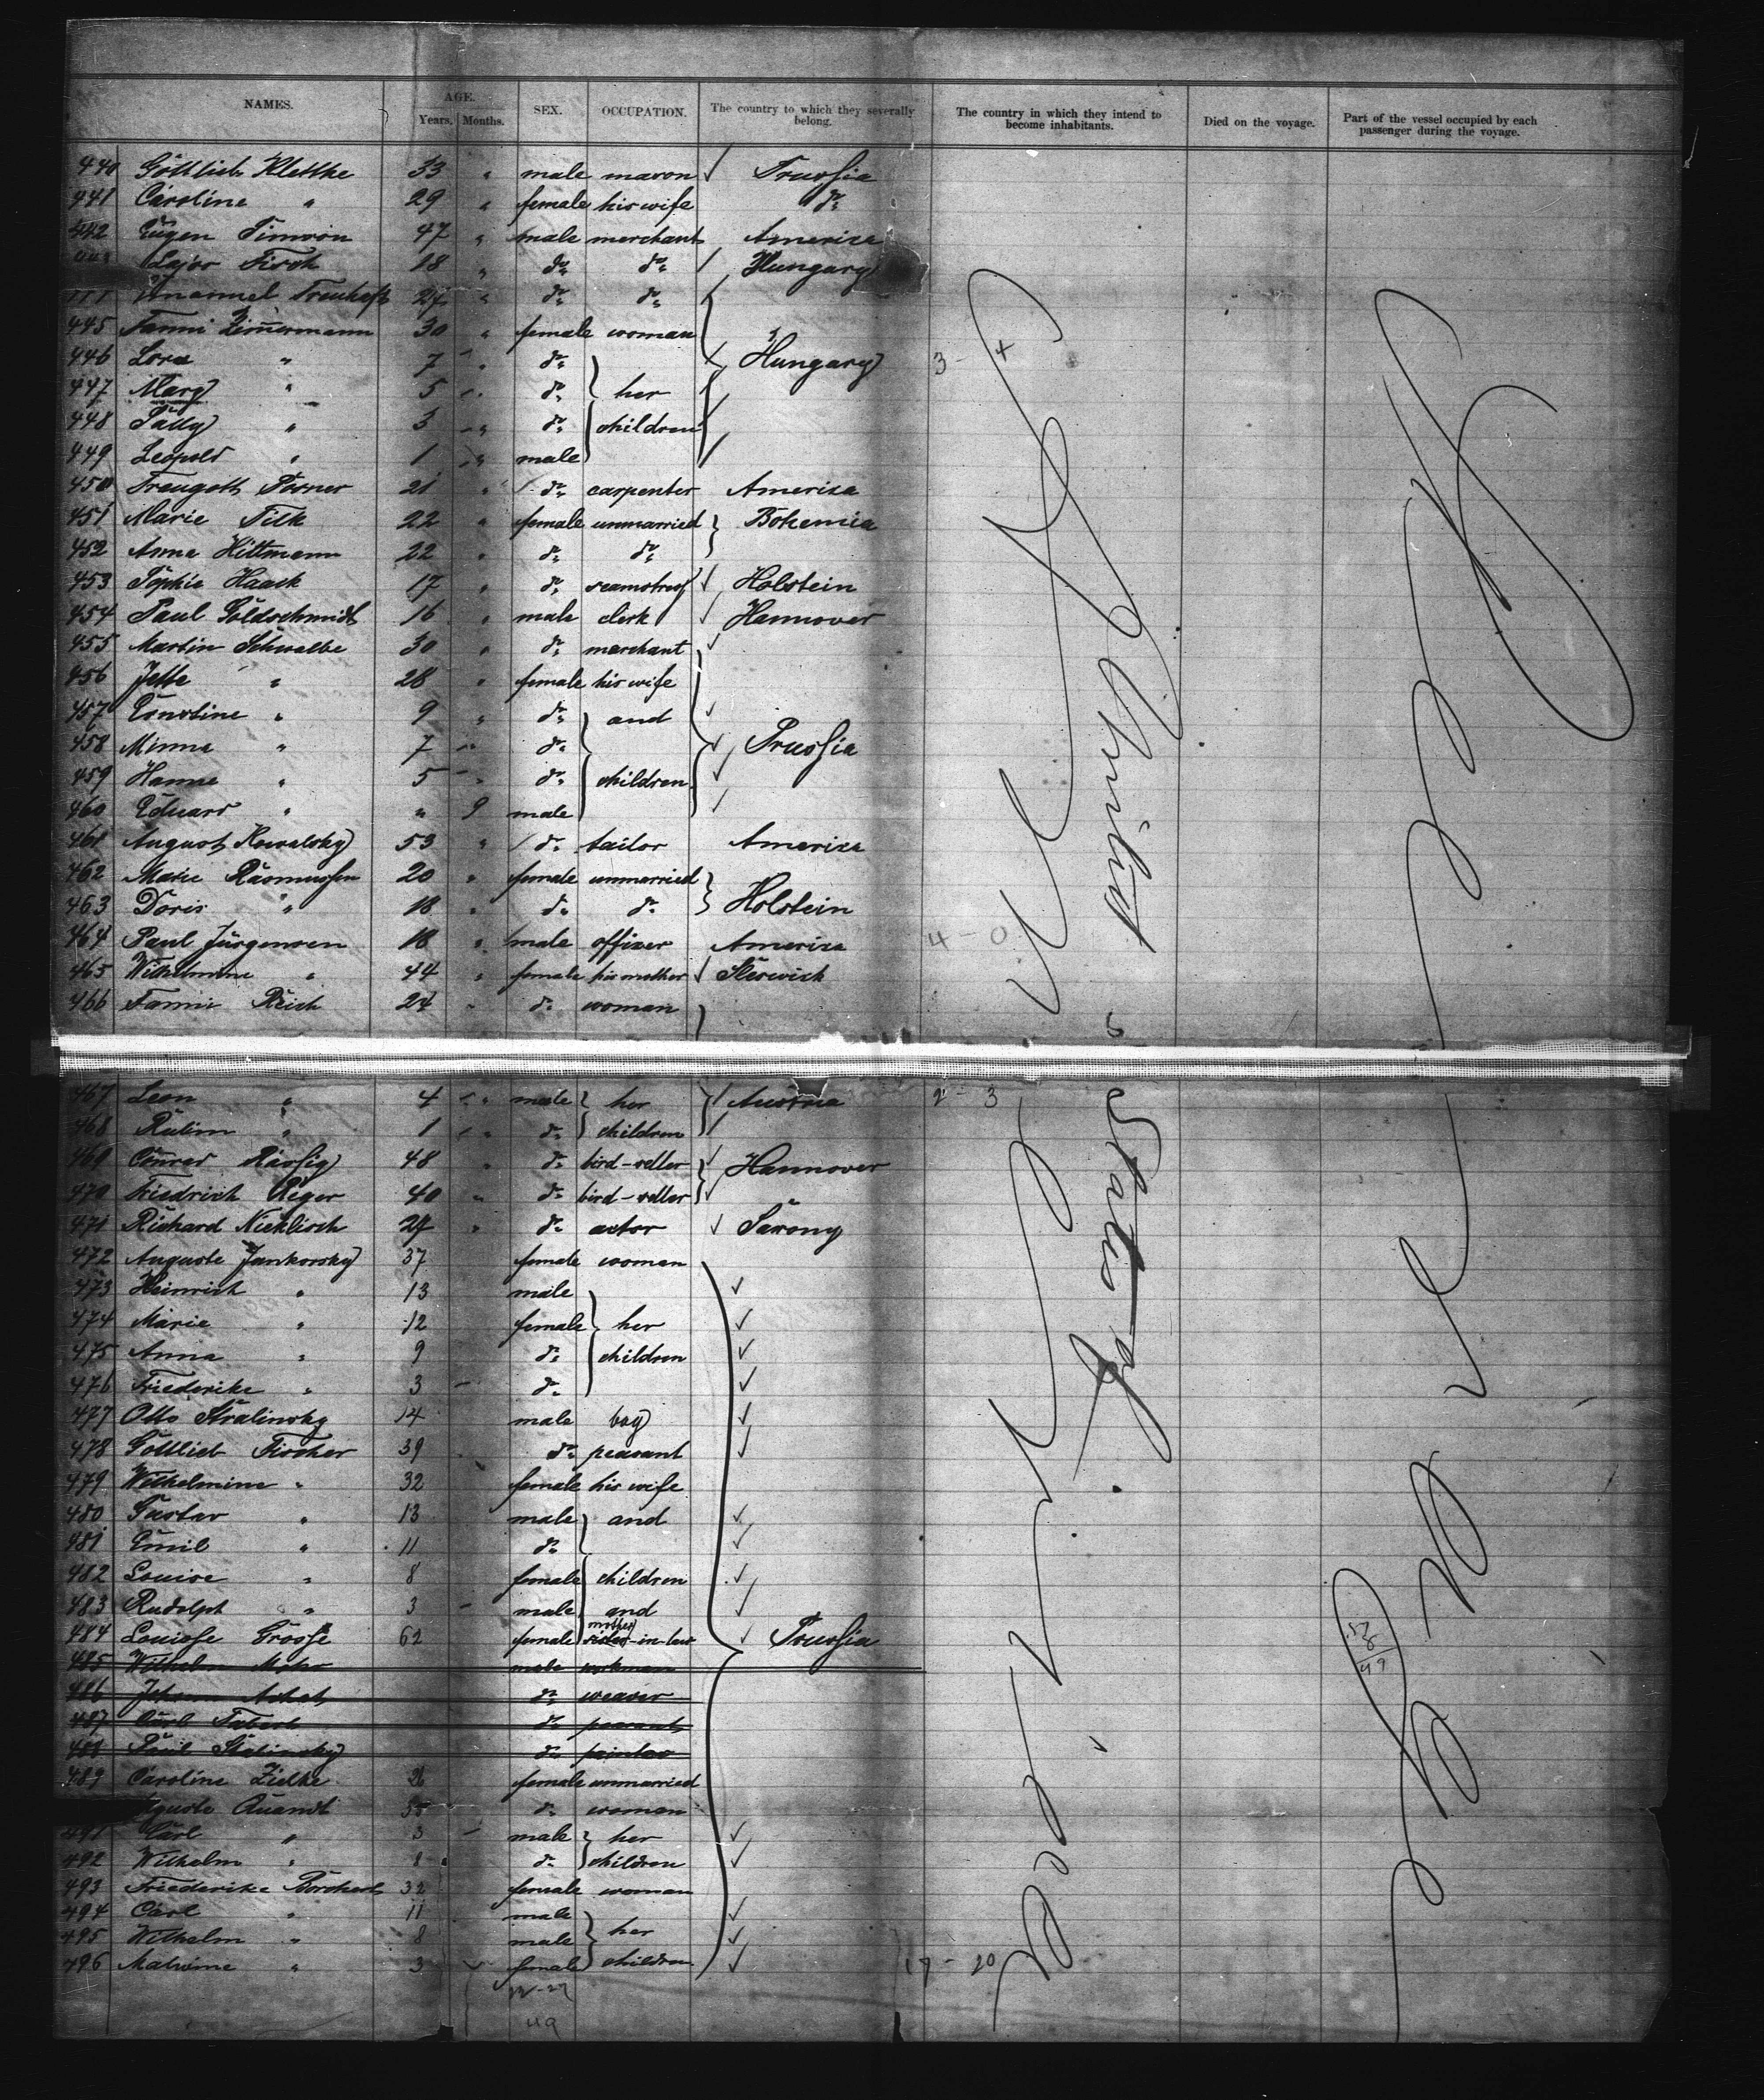 NAMES. AGE. Years. Months. SEX. OCCUPATION. The country to which they severally belong. The country in which they intend to become inhabitants. Died on the voyage. Part of the vessel occupied by each passenger during the voyage.
440 Gottlieb Klettke 33 " male mason Prussia
441 Caroline " 29 " female his wife do
442 Eugen Simson 47 " male merchant America
Lajos Fisch 18 " do do Hungary
Emanuel Treuhaft 24 " do do
445 Fanni Zimermann 30 " female woman
446 Lora " 7 " do Hungary 3 - 4
447 Mary " 5 " do her
448 Sally " 3 " do children
449 Leopold " 1 " male
450 Traugott Posner 21 " do carpenter America
451 Marie Filk 22 " female unmarried Bohemia
452 Anna Hittmann 22 " do do
453 Sophie Haack 17 " do seamstress Holstein
454 Paul Goldschmidt 16 " male clerk Hannover
455 Martin Schwalbe 30 " do merchant
456 Jette " 28 " female his wife
457 Ernstine " 9 " do and
458 Minna " 7 " do Prussia
459 Hanne " 5 " do children
460 Eduard " " 9 male
461 August Kowalsky 53 " do tailor America
462 Marie Rasmussen 20 " female unmarried
463 Doris " 18 " do do Holstein
464 Paul Jürgensen 18 " male officer America 4 - 0
465 Wilhelmine " 44 " female his mother
466 Fanni Reich 24 " do woman
United
467 Leon " 4 " male her Austria 2 - 3
468 " 1 " do children
469 Conrad 48 " do bird-seller Hannover
470 Friedrich Reger 40 " do bird-seller
471 Richard Nicklisch 29 " do actor Saxony
472 Auguste Jankowsky 37 female woman
473 Heinrich " 13 male
474 Marie " 12 female her
475 Anna " 9 do children
476 Friederike " 3 do
477 Otto Stralinsky 14 male boy
478 Gottlieb Fischer 39 do peasant
479 Wilhelmine " 32 female his wife
480 Gustav " 13 male and
481 Emil " 11 do
482 Louise " 8 female children
483 Rudolph " 3 male and
484 Louise Grosse 62 female mother sister-in-law Prussia
485 Wilhelm male workman
486 Johann do weaver
487 Carl Tabert do peasant
488 Paul do
489 Caroline Zielke 26 female unmarried
Auguste Quandt 35 do woman
491 Carl " 3 male her
492 Wilhelm " 8 do children
493 Friederike Borchert 32 female woman
494 Carl " 11 male
495 Wilhelm " 8 male her
496 Malwine " 3 female children 17 - 20
States of